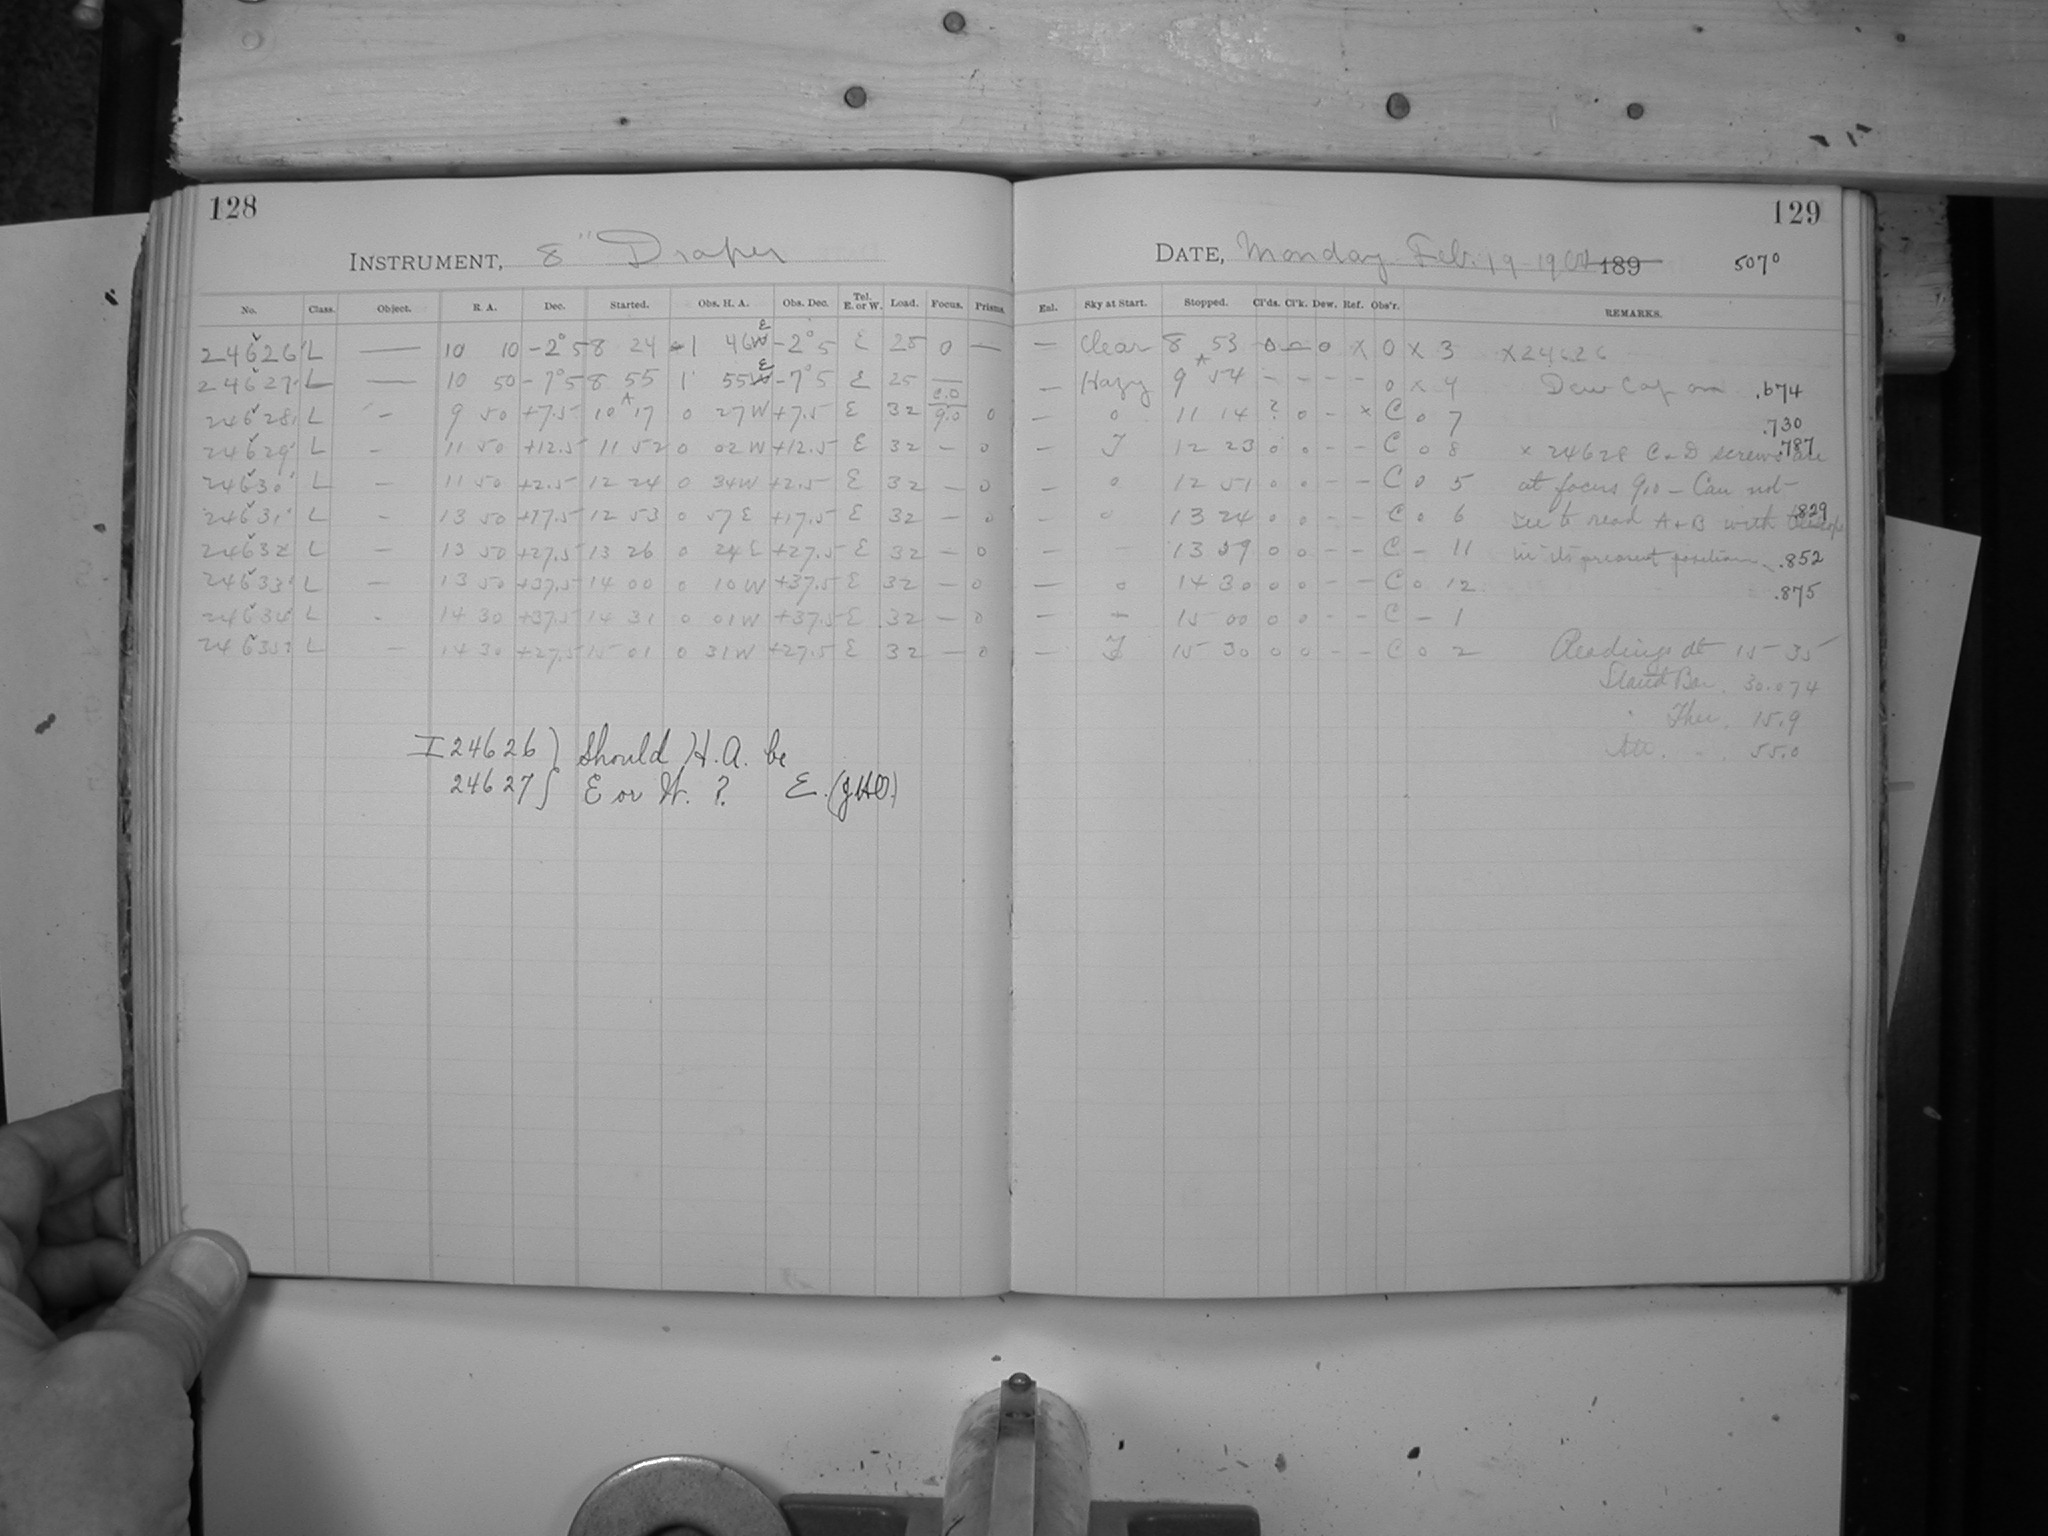 128
INSTRUMENT, 8" Draper
No. Class. Object. R. A. Dec. Started. Obs. H. A. Obs. Dec. Tel. E. or W. Load. Focus. Prisms.
24626 L — 10 10 -2°5 8 24 1 46 W E -2°5 E 25 0 —
24627 L — 10 50 -7°5 8 55 1 55 W E -7°5 E 25 —
24628 L — 9 50 +7.5 10 17 0 27 W +7.5 E 32 9.0 0
24629 L — 11 50 +12.5 11 52 0 02 W +12.5 E 32 — 0
24630 L — 11 50 +2.5 12 24 0 34 W +2.5 E 32 — 0
24631 L — 13 50 +17.5 12 53 0 57 E +17.5 E 32 — 0
24632 L — 13 50 +27.5 13 26 0 24 E +27.5 E 32 — 0
24633 L — 13 50 +37.5 14 00 0 10 W +37.5 E 32 — 0
24634 L - 14 30 +37.5 14 31 0 01 W +37.5 E 32 — 0
24635 L — 14 30 +27.5 15 01 0 31 W +27.5 E 32 — 0
I 24626 ) Should H.A. be
24627 ) E or W. ? E.
129
DATE, Monday Feb. 19 - 1900 189 5070
Enl. Sky at Start. Stopped. Cl'ds. Cl'k. Dew. Ref. Obs'r. REMARKS.
— Clear 8 53 0 — 0 x 0 x 3 x 24626
— Hazy 9 54 - - - - 0 x 4 Dew Cap on .674
— 0 11 14 ? 0 - x C 0 7 .730
— 12 23 0 0 - - C 0 8 x 24628 C & D screws are .787
— 0 12 51 0 0 - - C 0 5 at focus 9.0 — Can not
— 0 13 24 0 0 - - C 0 6 see to read A + B with telescope .829
— - 13 59 0 0 - - C - 11 in its present position. .852
— 0 14 30 0 0 - - C 0 12 .875
— - 15 00 0 0 - - C - 1
— 15 30 0 0 - - C 0 2 Readings at 15-35
Stand Bar. 30.074
Ther. 15.9
Att. 55.0